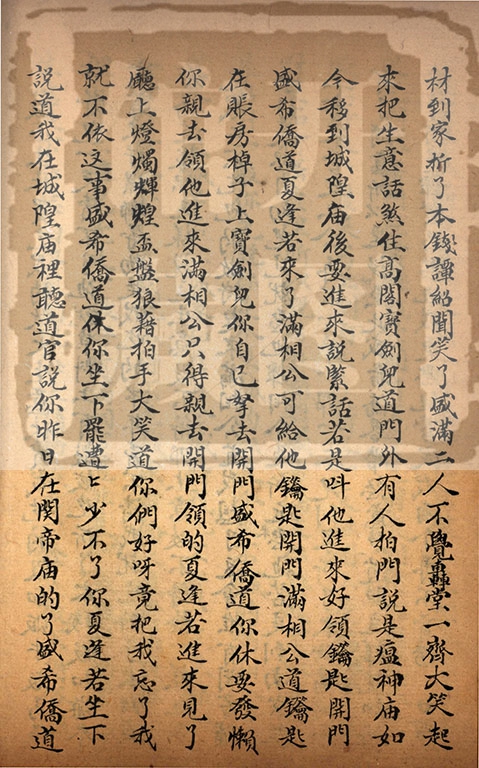 材到家折了本錢譚紹聞笑了盛滿二人不覺轟堂一齊大笑起
來把生意話煞住高閣寶劍兒道門外有人拍門說是瘟神庙如
今移到城隍庙後要進來說緊話若是呌他進來好領鑰匙開門
盛希僑道夏逢若來了滿相公可給他鑰匙開門滿相公道鑰匙
在賬房棹子上寶劍兒你自己拏去開門盛希僑道你休要發懶
你親去領他進來滿相公只得親去開門領的夏逢若進來見了
廳上燈燭輝煌盃盤狼藉拍手大笑道你們好呀竟把我忘了我
就不依这事盛希僑道休你坐下罷遭㆓少不了你夏逢若坐下
說道我在城隍庙裡聽道官說你昨日在関帝庙的了盛希僑道